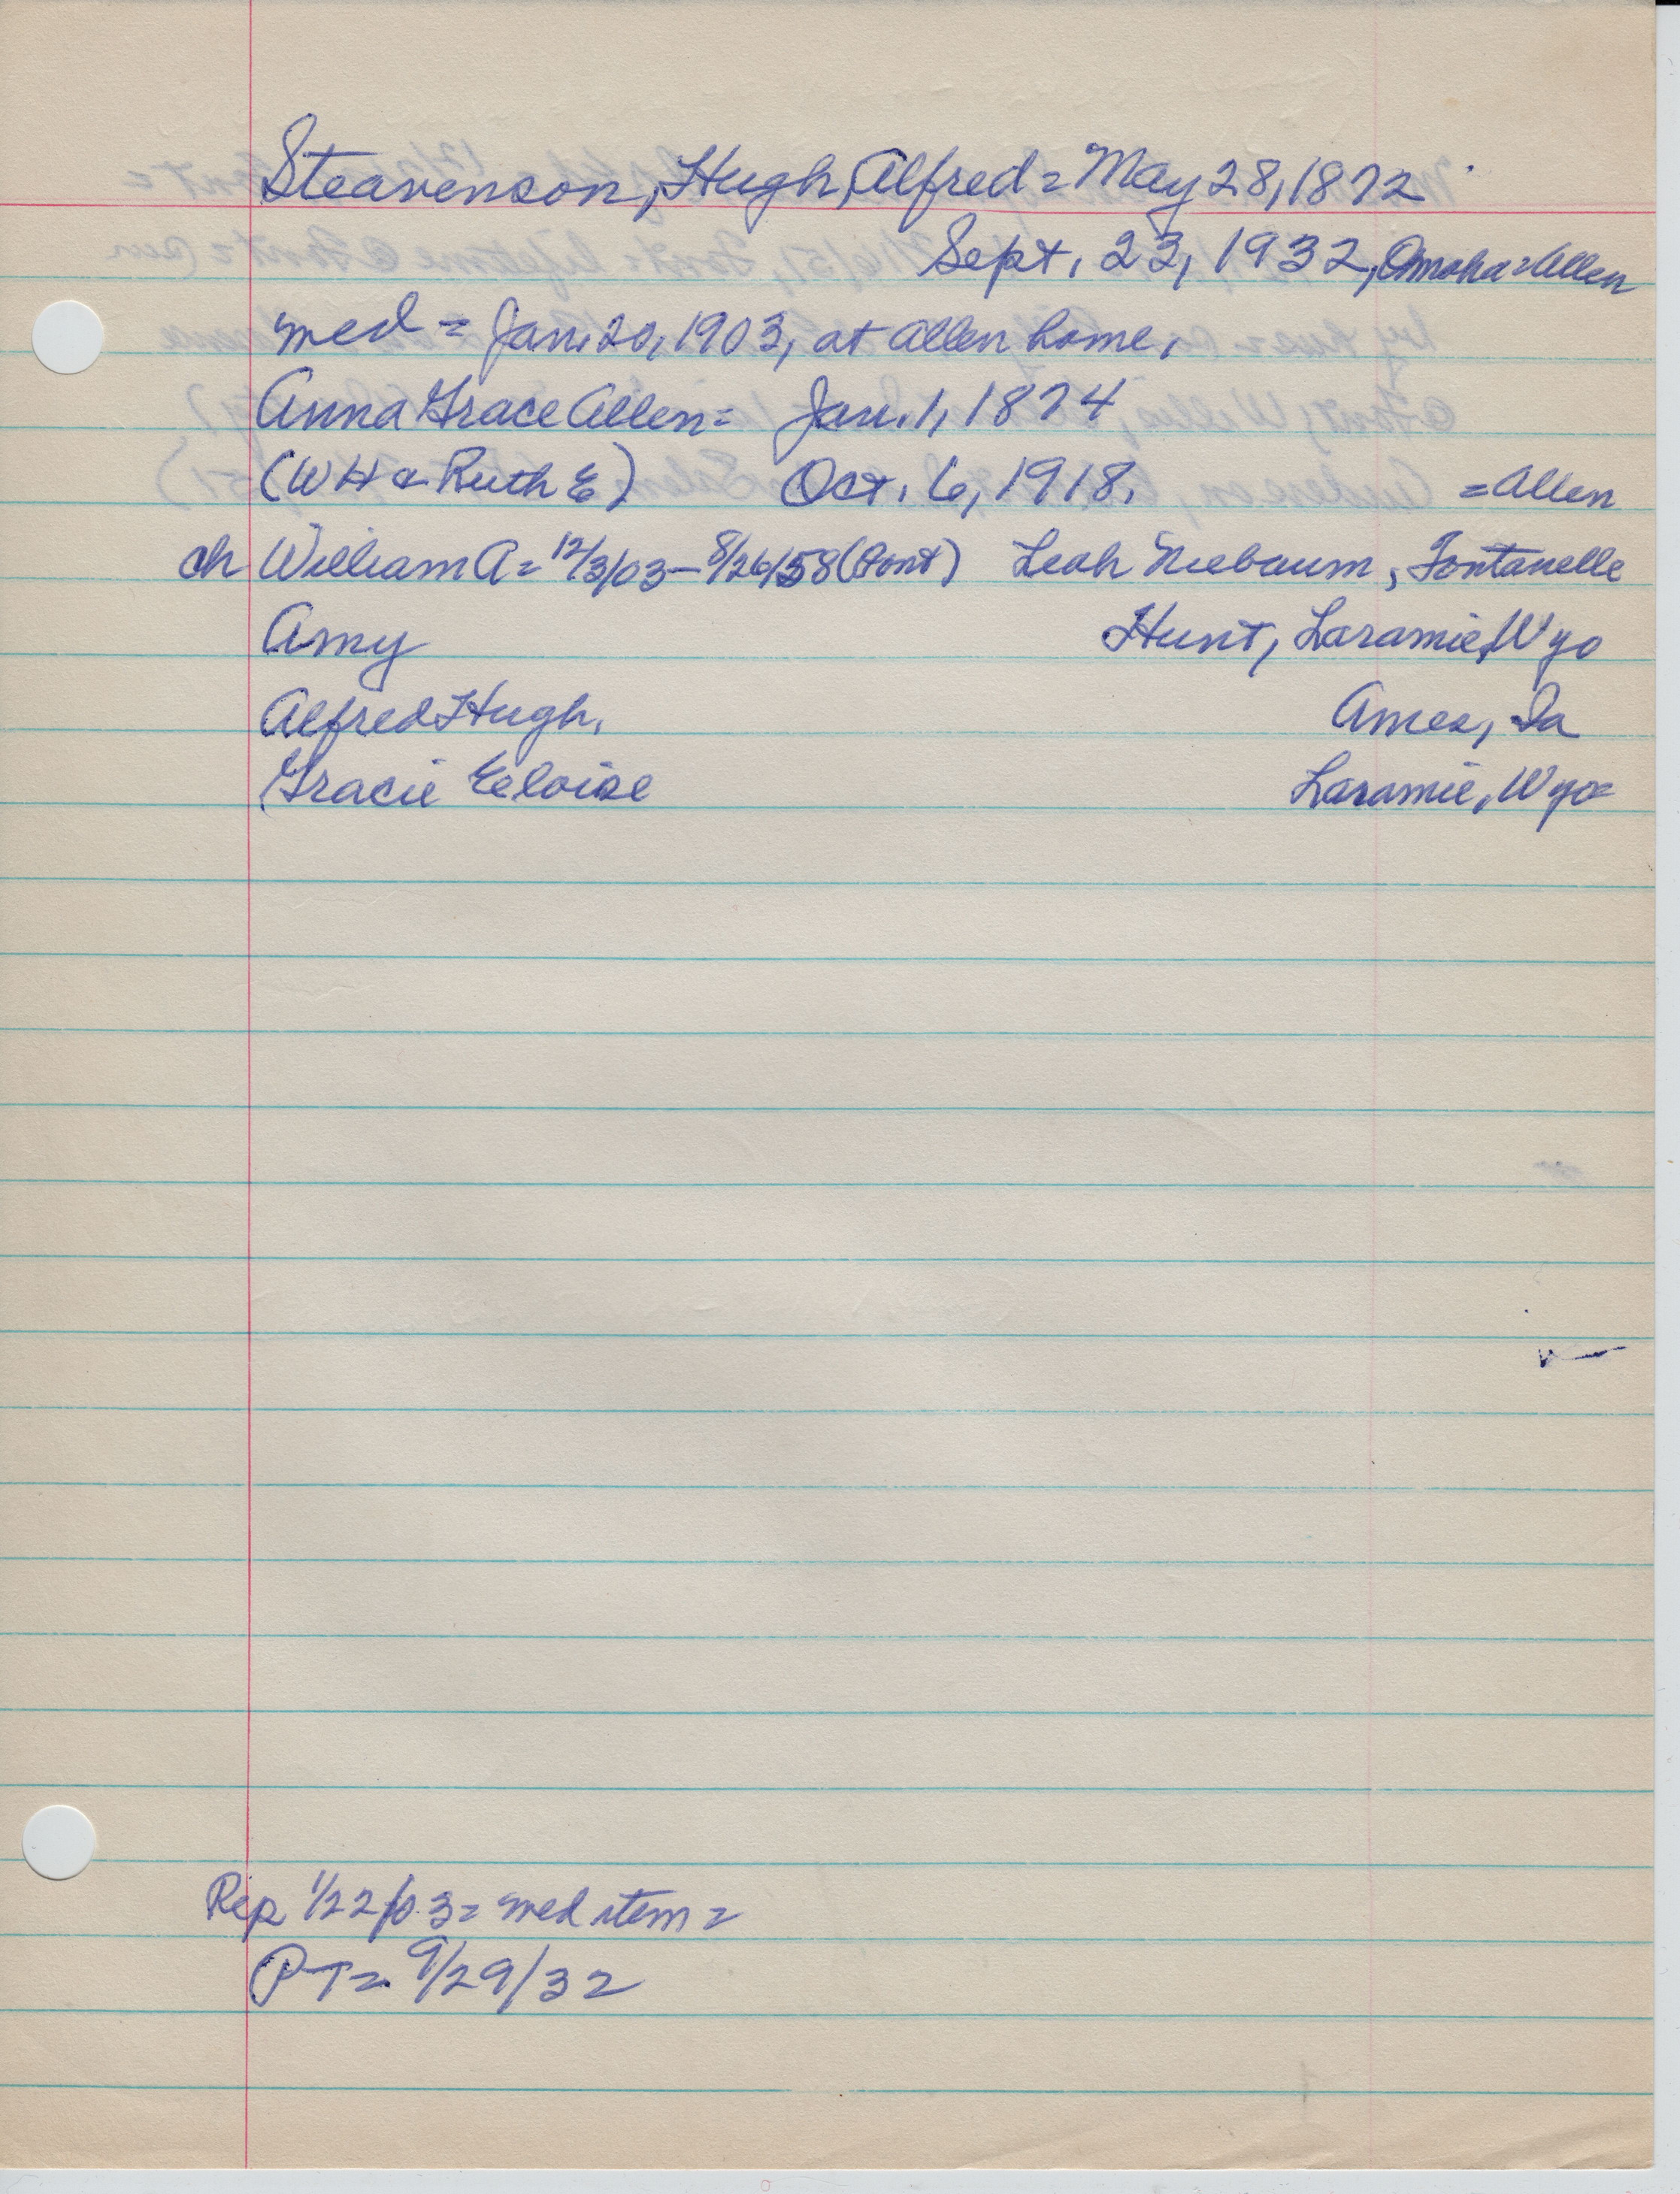 Steavenson, Hugh Alfred = May 28, 1872
Sept. 23, 1932, Omaha = Allen
med = Jan. 20, 1903, at Allen home,
Anna Grace Allen = Jan. 1, 1874
(WH & Ruth E) Oct. 6, 1918. = Allen
ch William A = 12/3/03 – 8/26/58 (Font) Leah Niebaum, Fontanelle
Amy Hunt, Laramie, Wyo
Alfred Hugh, Ames, Ia
Gracie Eeloise Laramie, Wyo =
Rep 1/22/03 = med item =
PT = 9/29/32